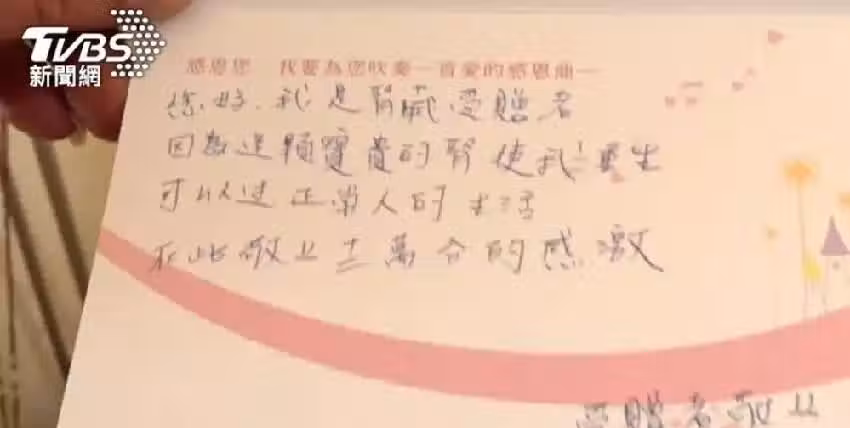 TVBS
新聞網
感恩您 我要為您吹奏一首愛的感恩曲
您好,我是腎臟受贈者
因為這顆寶貴的腎使我重生
可以過正常人的生活
在此敬上十二萬分的感激
受贈者敬上